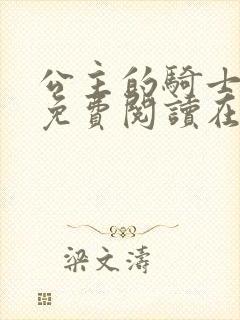 公主的騎士
免費閱讀在
梁文濤